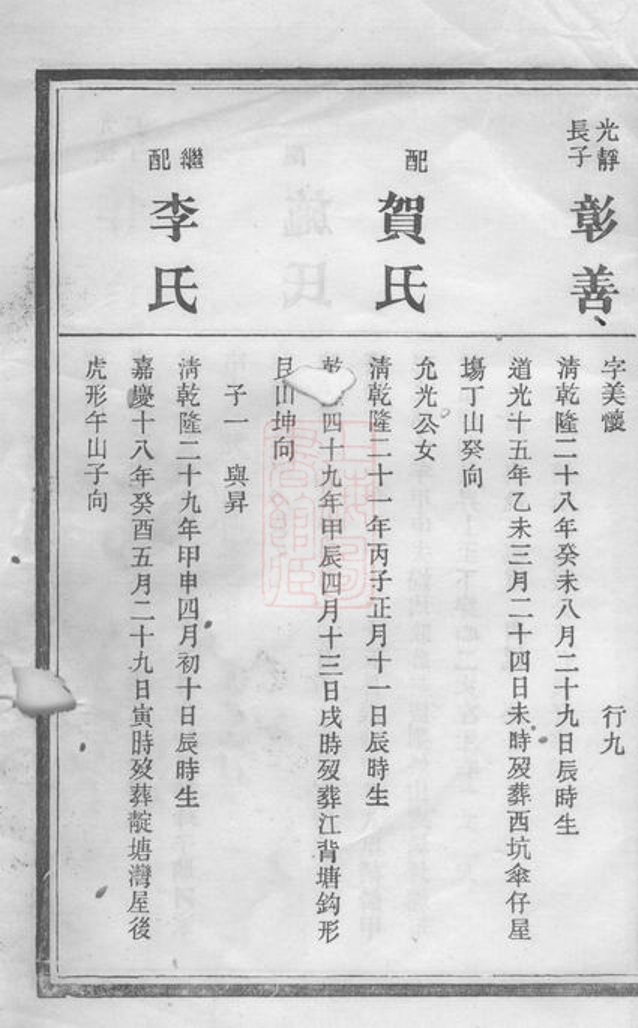 光靜
長子
彰善、
字美懷 行九
淸乾隆二十八年癸未八月二十九日辰時生
道光十五年乙未三月二十四日未時歿葬西坑傘仔屋
塲丁山癸向
配
賀氏
允光公女
淸乾隆二十一年丙子正月十一日辰時生
乾 四十九年甲辰四月十三日戌時歿葬江背塘鈎形
艮山坤向
子一 與昇
繼
配
李氏
淸乾隆二十九年甲申四月初十日辰時生
嘉慶十八年癸酉五月二十九日寅時歿葬靛塘灣屋後
虎形午山子向